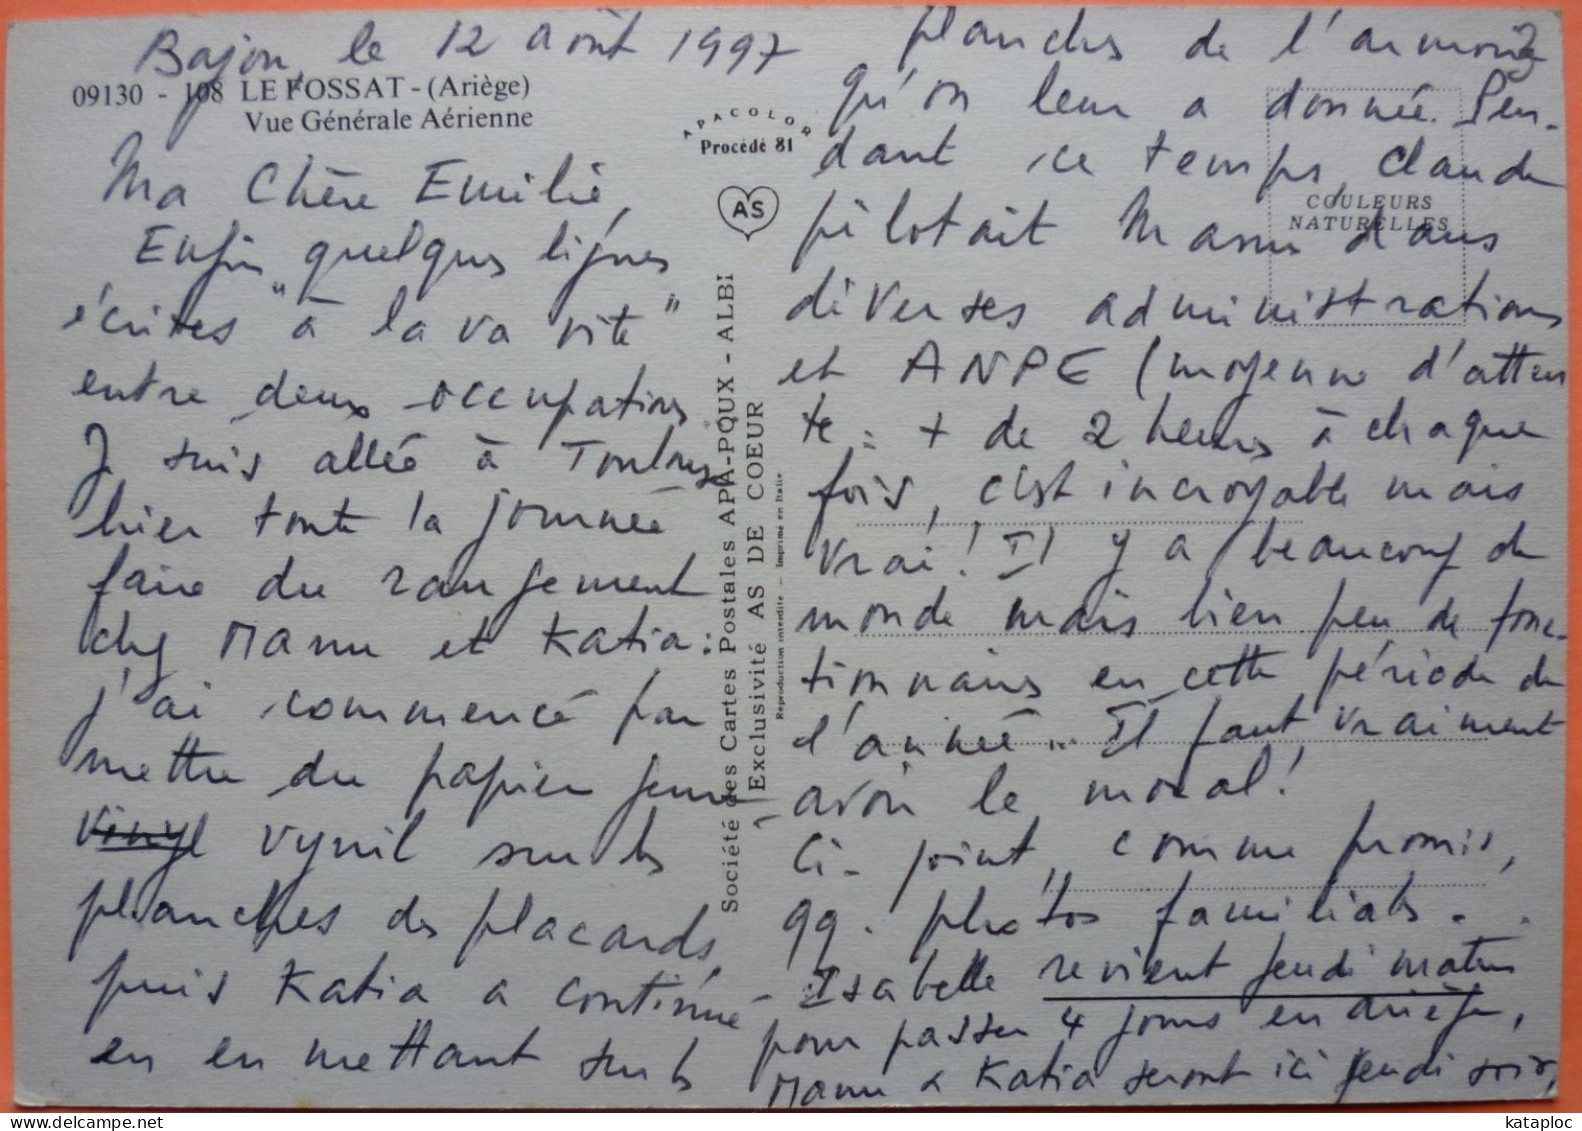 Bajou, le 12 août 1997
09130 - 108 LE FOSSAT - (Ariège)
Vue Générale Aérienne
Ma Chère Emilie,
Enfin quelques lignes
écrites "à la va vite"
entre deux occupations
Je suis allée à Toulouse
hier toute la journée
faire du rangement
chez Manu et Katia :
j'ai commencé par
mettre du papier genre
vinyl vynil sur les
planches des placards,
puis Katia a continué
en en mettant sur les
APACOLOR
Procédé 81
AS
Société des Cartes Postales APA-POUX - ALBI
Exclusivité AS DE COEUR
Reproduction interdite - Imprimé en Italie
COULEURS
NATURELLES
planches de l'armoire
qu'on leur a donnée. Pen-
dant ce temps, Claude
pilotait Manu dans
diverses administrations
et ANPE (moyenne d'atten
te = + de 2 heures à chaque
fois, c'est incroyable mais
vrai ! Il y a beaucoup de
monde mais bien peu de fonc-
tionnaires en cette période de
l'année... Il faut vraiment
avoir le moral !
Ci-joint, comme promis,
qq. photos familiales.
- Isabelle revient jeudi matin
pour passer 4 jours en ariège,
Manu & Katia seront ici jeudi soir,
kataploc